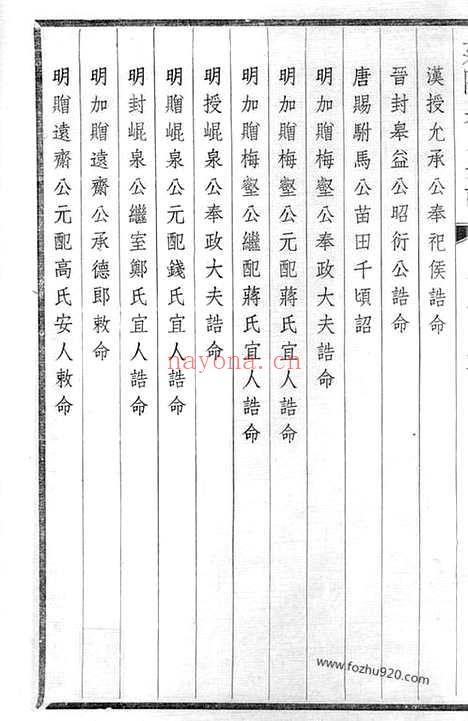 漢授允承公奉祀侯誥命
晉封皋益公昭衍公誥命
唐賜駙馬公苗田千頃詔
明加贈梅壑公奉政大夫誥命
明加贈梅壑公元配蔣氏宜人誥命
明加贈梅壑公繼配蔣氏宜人誥命
明授崐泉公奉政大夫誥命
明贈崐泉公元配錢氏宜人誥命
明封崐泉公繼室鄭氏宜人誥命
明加贈遠齋公承德郎敕命
明贈遠齋公元配高氏安人敕命
nayona.cn
www.fozhu920.com